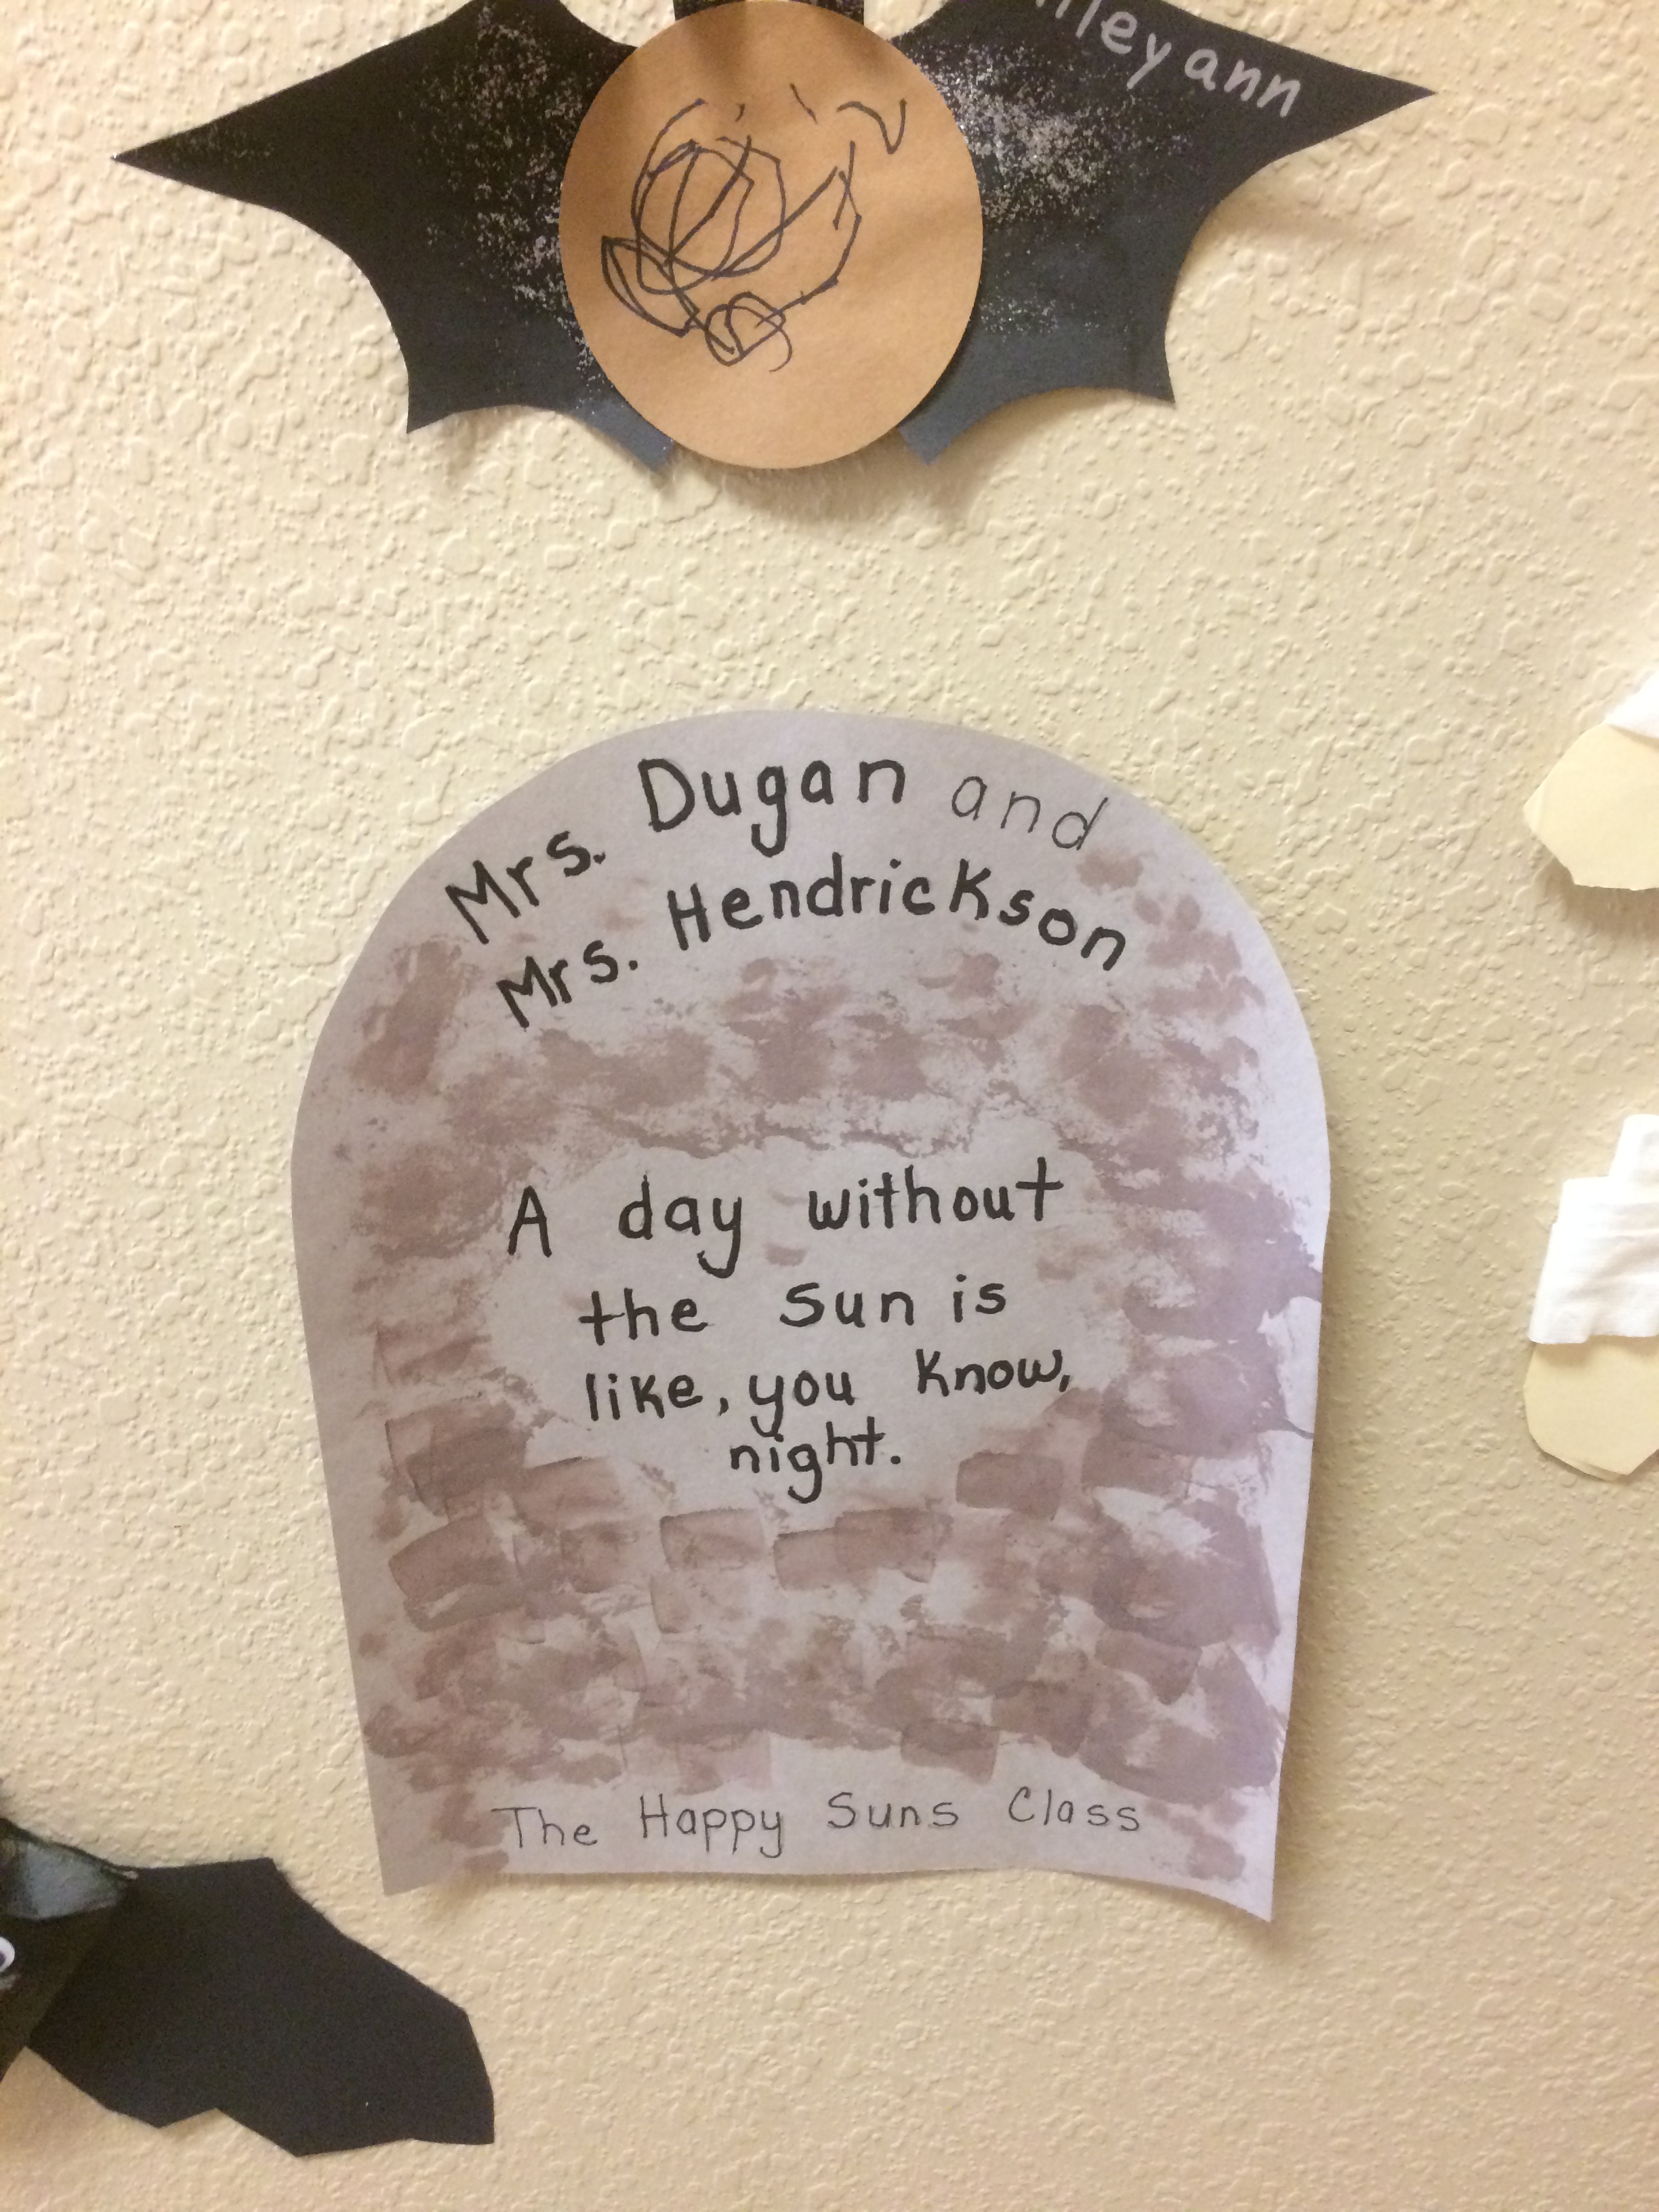 Mrs. Dugan and
Mrs. Hendrickson
A day without
the sun is
like, you know,
night.
The Happy Suns Class